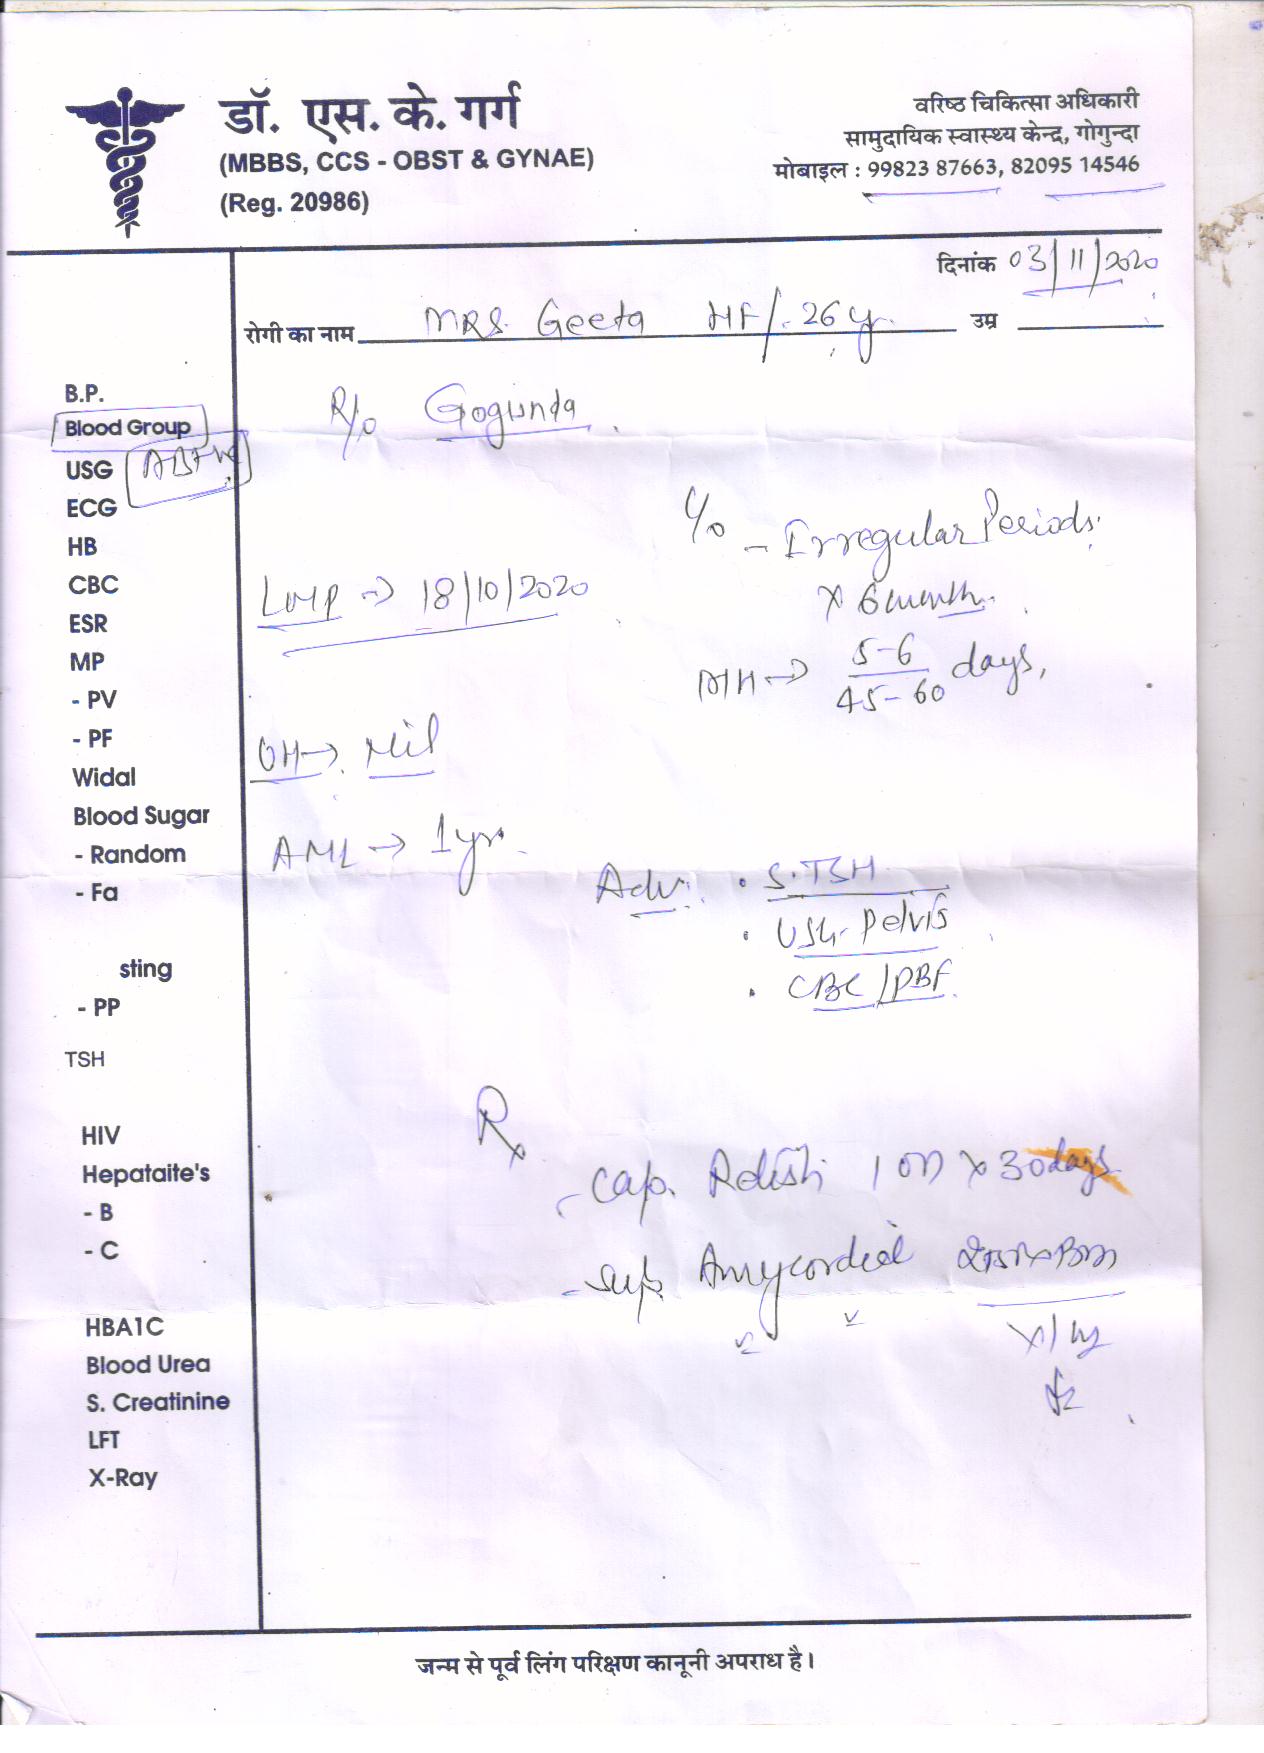 डॉ. एस. के. गर्ग
(MBBS, CCS - OBST & GYNAE)
(Reg. 20986)
वरिष्ठ चिकित्सा अधिकारी
सामुदायिक स्वास्थ्य केन्द्र, गोगुन्दा
मोबाइल : 99823 87663, 82095 14546
दिनांक 03/11/2020
रोगी का नाम MRS. Geeta HF/. 26 yr. उम्र
R/o Gogunda
B.P.
Blood Group
AB+ve
USG
ECG
HB
CBC
ESR
MP
- PV
- PF
Widal
Blood Sugar
- Random
- Fa
sting
- PP
TSH
HIV
Hepataite's
- B
- C
HBA1C
Blood Urea
S. Creatinine
LFT
X-Ray
C/o - Irregular Periods.
x 6 month.
LMP → 18/10/2020
MH → 5-6
45-60 days,
OH → Nil
AML → 1 yr.
Adv: • S.TSH
• USG. Pelvis
• CBC/PBF.
Rx
- Cap. 1 OD x 30 days
- Syp. Amycordial
जन्म से पूर्व लिंग परिक्षण कानूनी अपराध है।